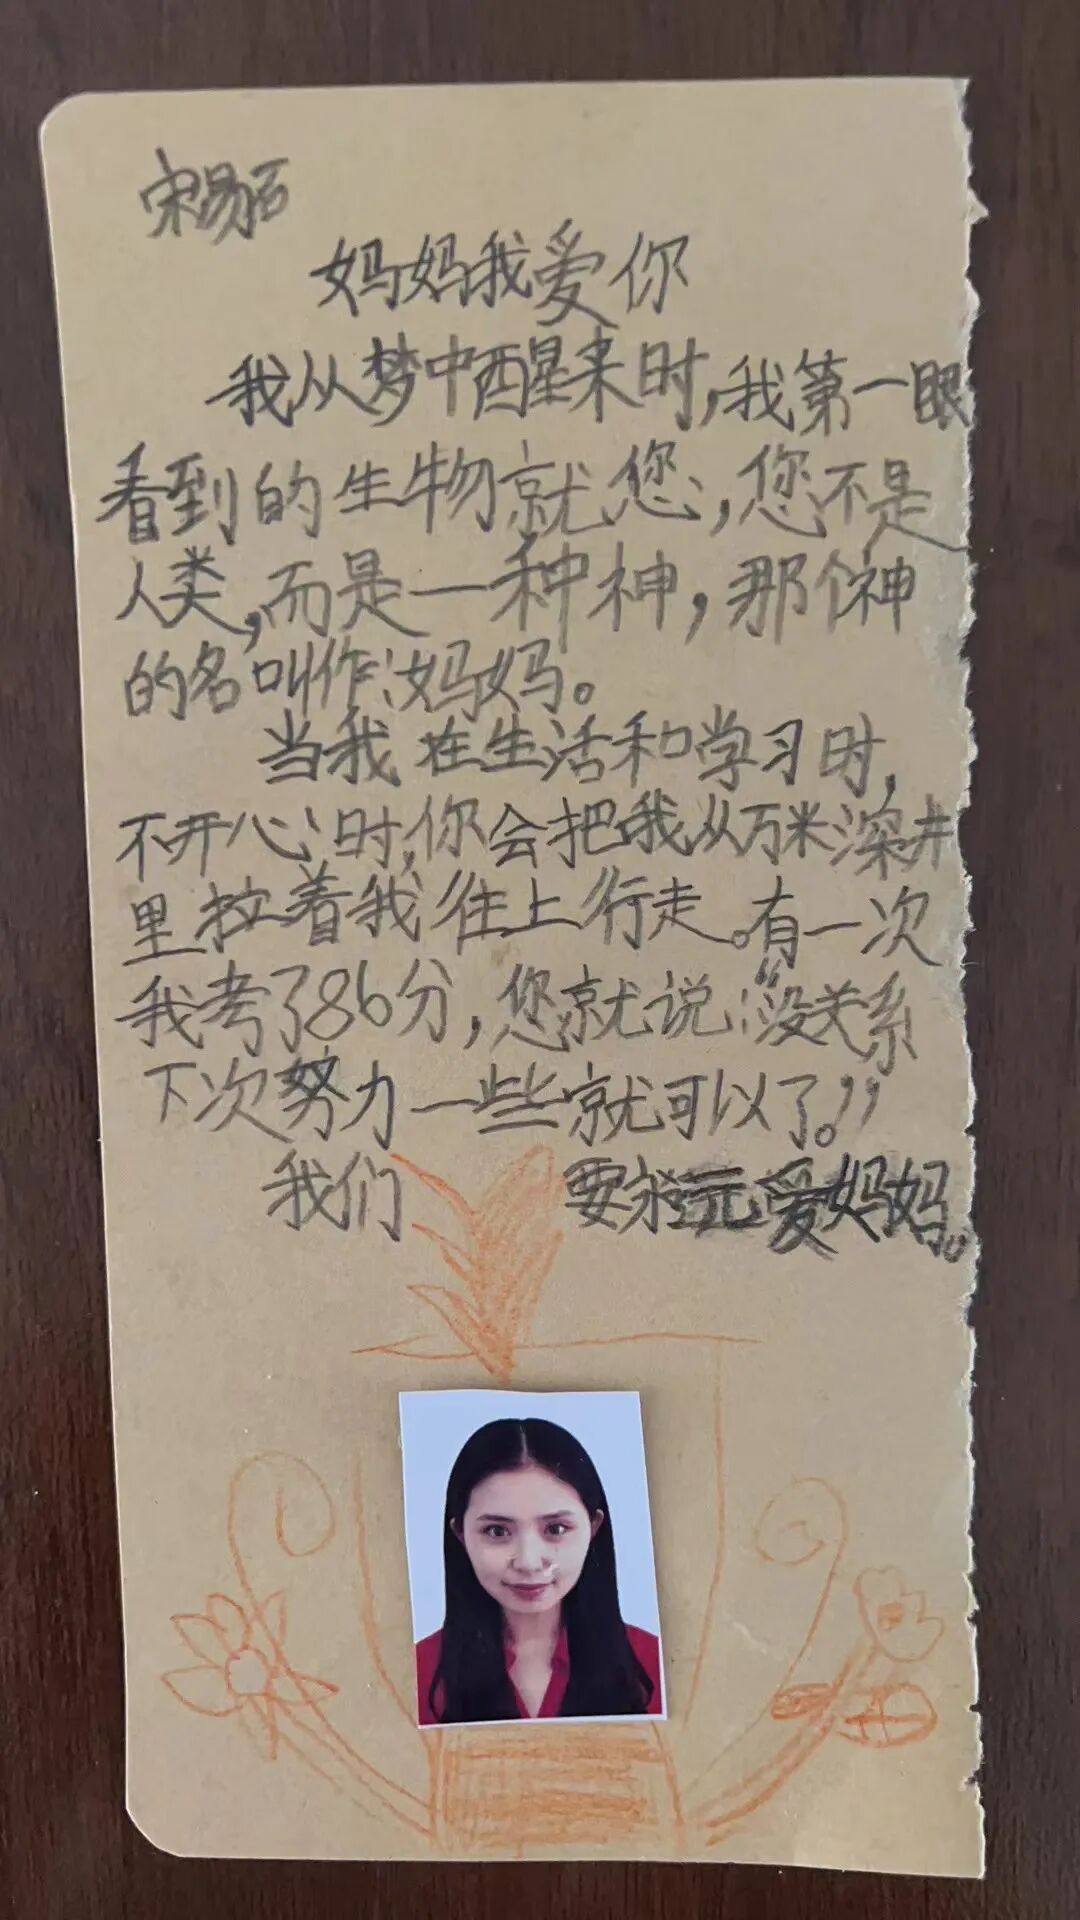 宋易石
妈妈我爱你
我从梦中醒来时,我第一眼
看到的生物就您,您不是
人类,而是一种神,那个神
的名叫作:妈妈。
当我在生活和学习时,
不开心时,你会把我从万米深井
里拉着我往上行走。有一次
我考了86分,您就说:“没关系
下次努力一些就可以了。”
我们 要永远爱妈妈。